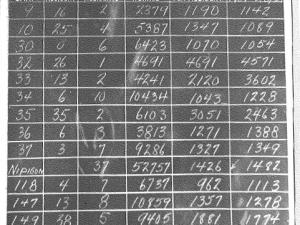 9 16 2 2379 1190 1142
10 25 4 5387 1347 1089
30 0 6 6423 1070 1054
32 26 1 4691 4691 4571
33 13 2 4241 2120 3602
34 6 10 10434 1043 1228
35 35 2 6103 3051 2463
36 6 3 3813 1271 1388
37 3 7 9286 1327 1349
NIPIGON 37 52757 1426 1482
118 4 7 6737 962 1113
147 13 8 10859 1357 1278
149 38 5 9405 1881 1774